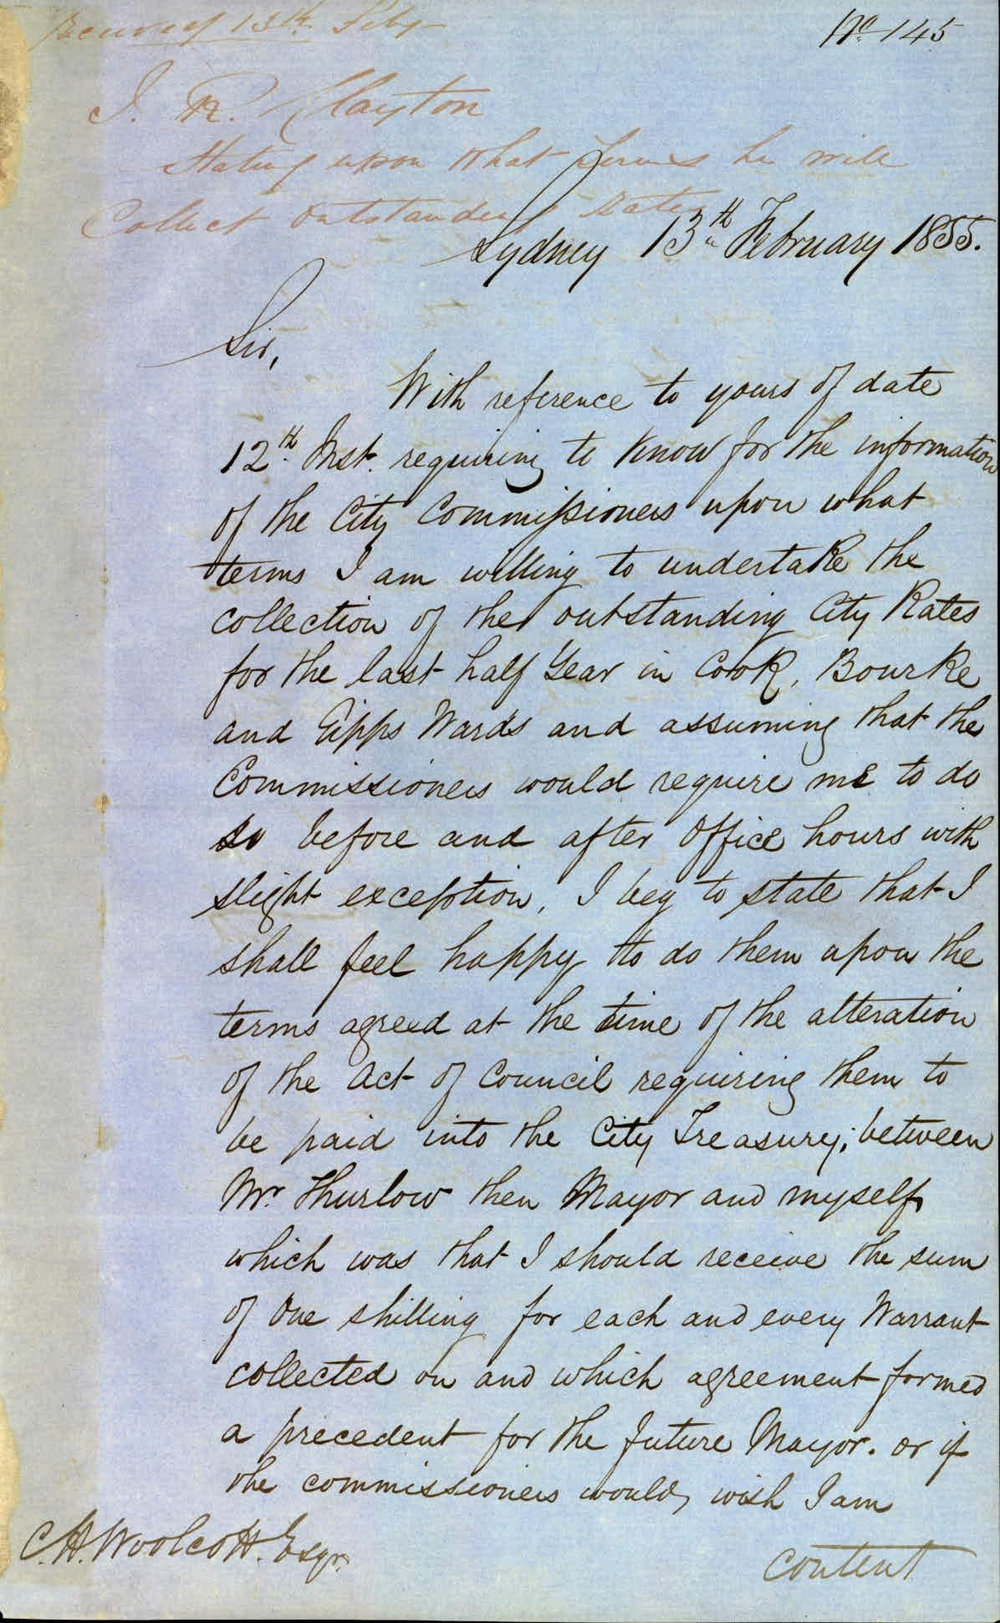 Received 13th Feby
No. 145
J. R. Clayton
Stating upon what terms he will
Collect outstanding rates
Sydney 13th February 1855.
Sir,
With reference to yours of date
12th Inst. requiring to know for the information
of the City Commissioners upon what
terms I am willing to undertake the
collection of the outstanding City Rates
for the last half Year in Cook, Bourke
and Gipps Wards and assuming that the
Commissioners would require me to do
so before and after Office hours with
slight exception, I beg to state that I
shall feel happy to do them upon the
terms agreed at the time of the alteration
of the Act of Council requiring them to
be paid into the City Treasury; between
Mr. Thurlow then Mayor and myself,
which was that I should receive the sum
of One shilling for each and every Warrant
collected on and which agreement formed
a precedent for the future Mayor. or if
the commissioners would, wish I am
C. H. Woolcott. Esqr.
content